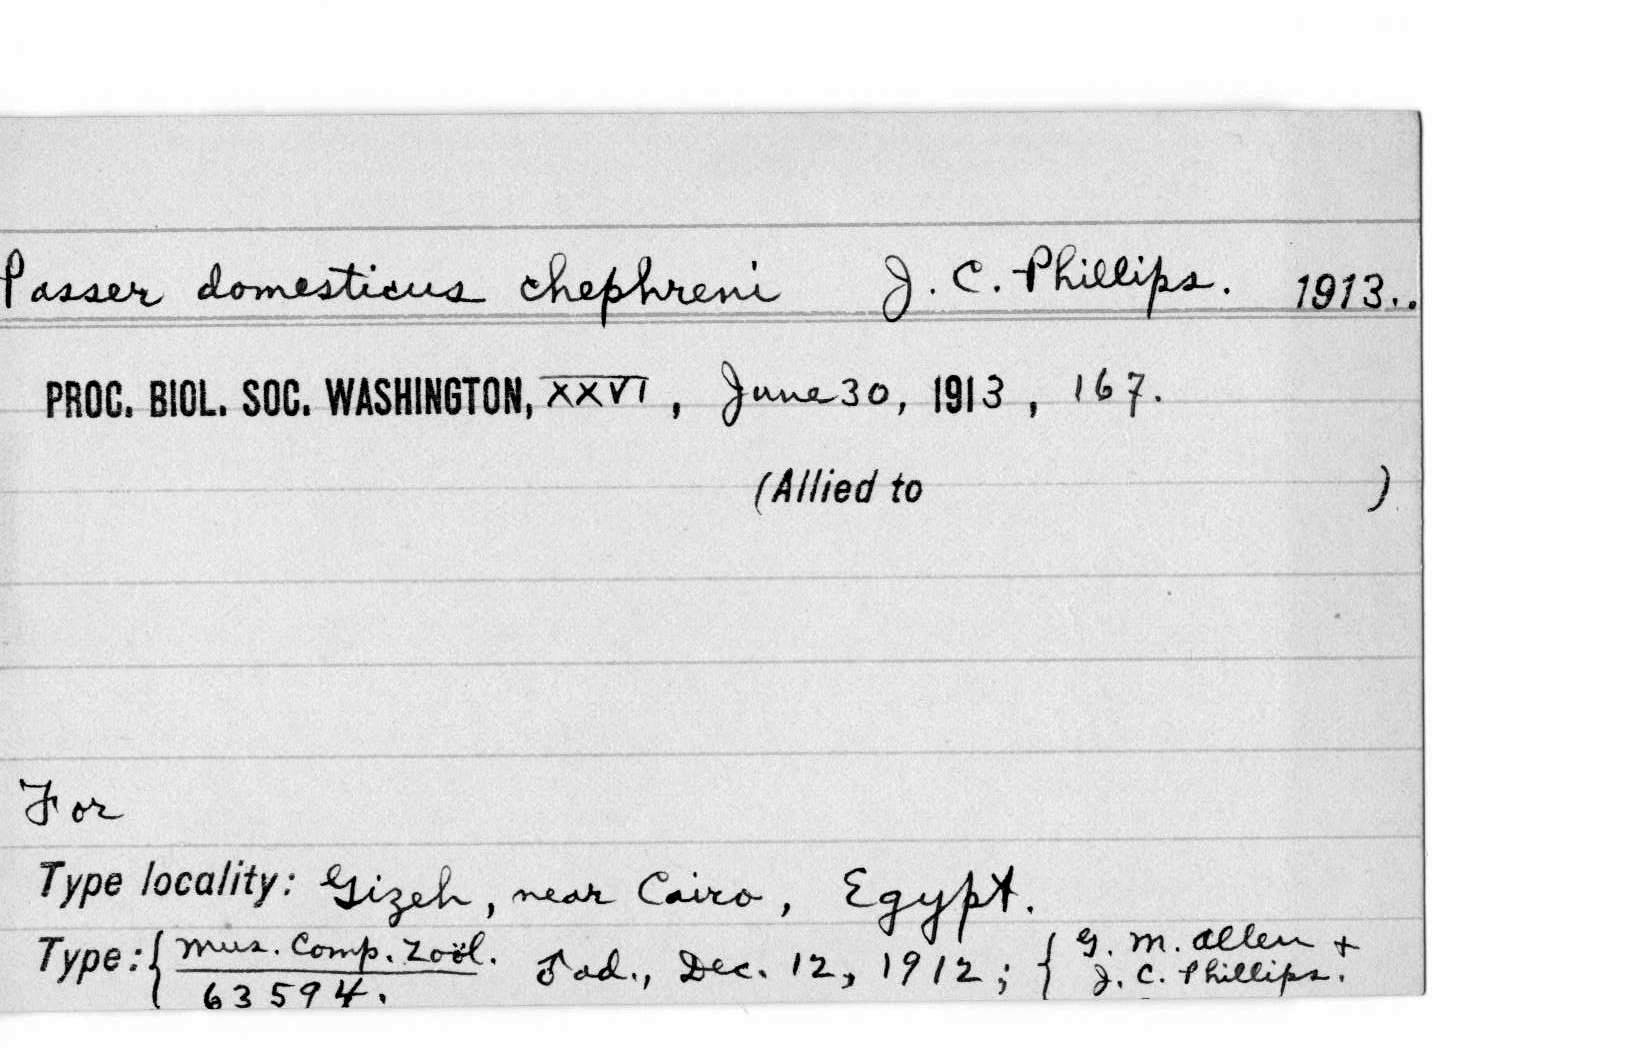 Passer domesticus chephreni J. C. Phillips. 1913..
PROC. BIOL. SOC. WASHINGTON, XXVI, June 30, 1913, 167.
(Allied to )
For
Type locality: Gizeh, near Cairo, Egypt.
Type: { Mus. Comp. Zoöl. ♂ ad., Dec. 12, 1912; { G. M. Allen +
63594. J. C. Phillips.